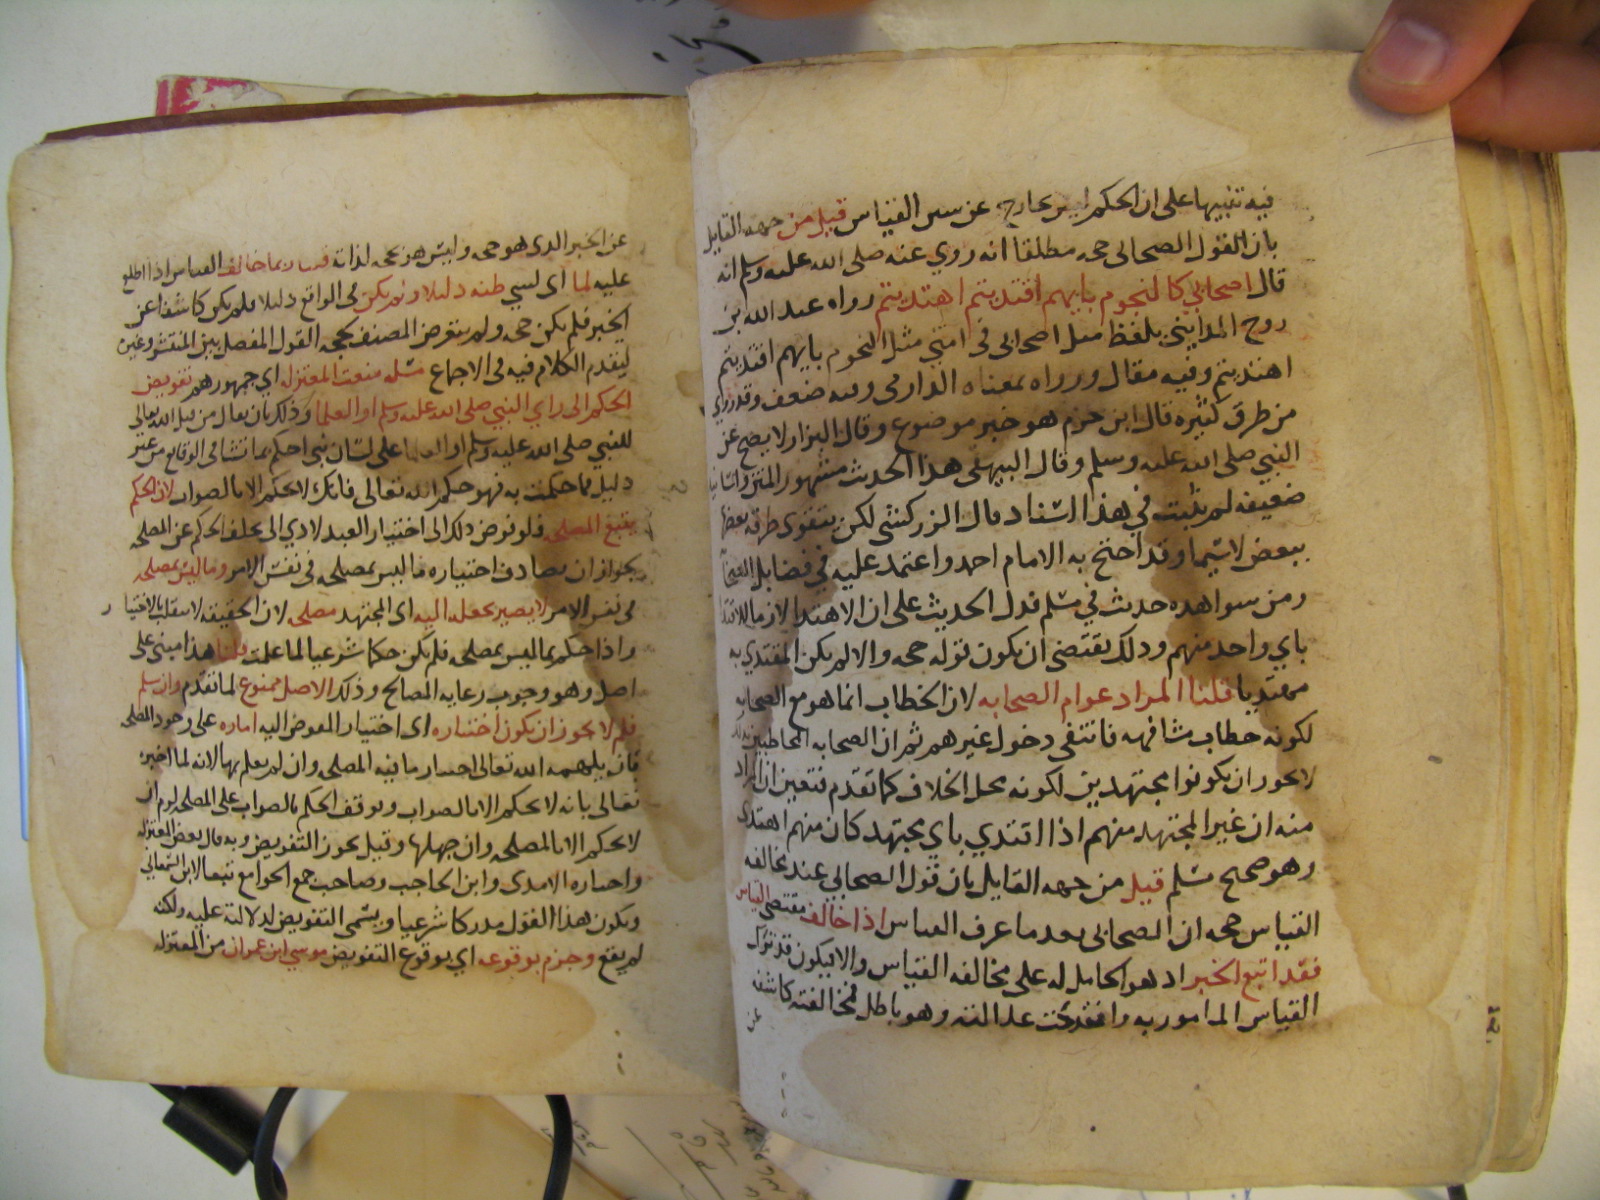 فيه تنبيها على ان الحكم ليس بخارج عن سنن القياس قيل من جهه القايل
بان القول الصحابى حجه مطلقا انه روي عنه صلى الله عليه وسلم انه
قال اصحابي كالنجوم بايهم اقتديتم اهتديتم رواه عبد الله بن
روح المدايني بلفظ مثل اصحابى فى امتي مثل النجوم بايهم اقتديتم
اهتديتم وفيه مقال ورواه بمعناه الدارمى وفيه ضعف وقد روي
من طرق كثيره قال ابن حزم هو خبر موضوع وقال البزار لا يصح عن
النبي صلى الله عليه وسلم وقال البيهقى هذا الحديث مشهور المتن واسانيد
ضعيفه لم يثبت في هذا اسناد قال الزركشى لكن يتقوى طرقه بعضها
ببعض لاسيما وقد احتج به الامام احمد واعتمد عليه في فضايل الصحا
ومن شواهده حديث في مسلم فدل الحديث على ان الاهتدا لازم للاقتدا
باي واحد منهم وذلك يقتضى ان يكون قوله حجه والا لم يكن المقتدي به
مهتديا قلنا المراد عوام الصحابه لان الخطاب انما هو مع الصحابه
لكونه خطاب مشافهه فانتفى دخول غيرهم ثم ان الصحابه المخاطبين بذلك
لا يجوز ان يكونوا مجتهدين لكونه محل الخلاف كما تقدم فتعين ان المراد
منه ان غير المجتهد منهم اذا اقتدي باي مجتهد كان منهم اهتدى
وهو صحيح مسلم قيل من جهه القايل بان قول الصحابي عند مخالفه
القياس حجه ان الصحابى بعد ما عرف القياس اذا خالف مقتضى القياس
فقد اتبع الخبر اذ هو الحامل له على مخالفه القياس والا فيكون قد ترك
القياس المامور به وا فقدحت عدالته وهو باطل فمخالفته كاشفه
عن
عن الخبر الذى هو حجه وليس هو بحجه لذاته قلنا ربما خالف القياس اذا اطلع
عليه لما اى لشي ظنه دليلا ولم يكن فى الواقع دليلا فلم يكن كاشفا عن
الخبر فلم يكن حجه ولم يتعرض المصنف لحجه القول المفصل بين المنتشر وغيره
ليقدم الكلام فيه فى الاجماع مسله منعت المعتزله اي جمهورهم تفويض
الحكم الى راي النبي صلى الله عليه وسلم او العلما وذلك بان يقال من قبل الله تعالى
للنبي صلى الله عليه وسلم او العلما على لسان نبى احكم بما تشا فى الوقايع من غير
دليل فما حكمت به فهو حكم الله تعالى فانك لا تحكم الا بالصواب لان الحكم
يتبع المصلحه فلو فوض ذلك الى اختيار العبد لادي الى تخلف الحكم عن المصلحه
لجواز ان يصادف اختياره ما ليس بمصلحه فى نفس الامر وما ليس بمصلحه
فى نفس الامر لا يصير بجعله اليه اى المجتهد مصلحه لان الحقيقه لا تنقلب بالاختيار
واذا حكم بما ليس بمصلحه فلم يكن حكما شرعيا لما علمت قلنا هذا مبنى على
اصل وهو وجوب رعايه المصالح وذلك الاصل ممنوع لما تقدم وان سلم
فلم لا يجوز ان يكون اختياره اى اختيار المفوض اليه اماره على وجود المصلحه
فان يلهمه الله تعالى اختيار ما فيه المصلحه وان لم يعلم بها لانه لما اخبره
تعالى بانه لا يحكم الا بالصواب وتوقف الحكم بالصواب على المصلحه لزم ان
لا يحكم الا بالمصلحه وان جهلها وقيل يجوز التفويض وبه قال بعض المعتزله
واختاره الامدى وابن الحاجب وصاحب جمع الجوامع تبعا لابن السمعاني
ويكون هذا القول مدركا شرعيا ويسمى التفويض لدلالته عليه ولكنه
لم يقع وجزم بوقوعه اي بوقوع التفويض موسي ابن عمران من المعتزله